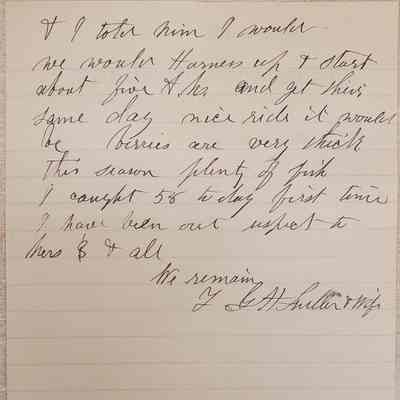 & I told him I would
we would Harness up & start
about five A Ms and get their
same day nice ride it would
be berries are very thick
this season plenty of fish
I caught 58 to day first time
I have been out respect to
Mrs B & all
We remain
G H & Wife